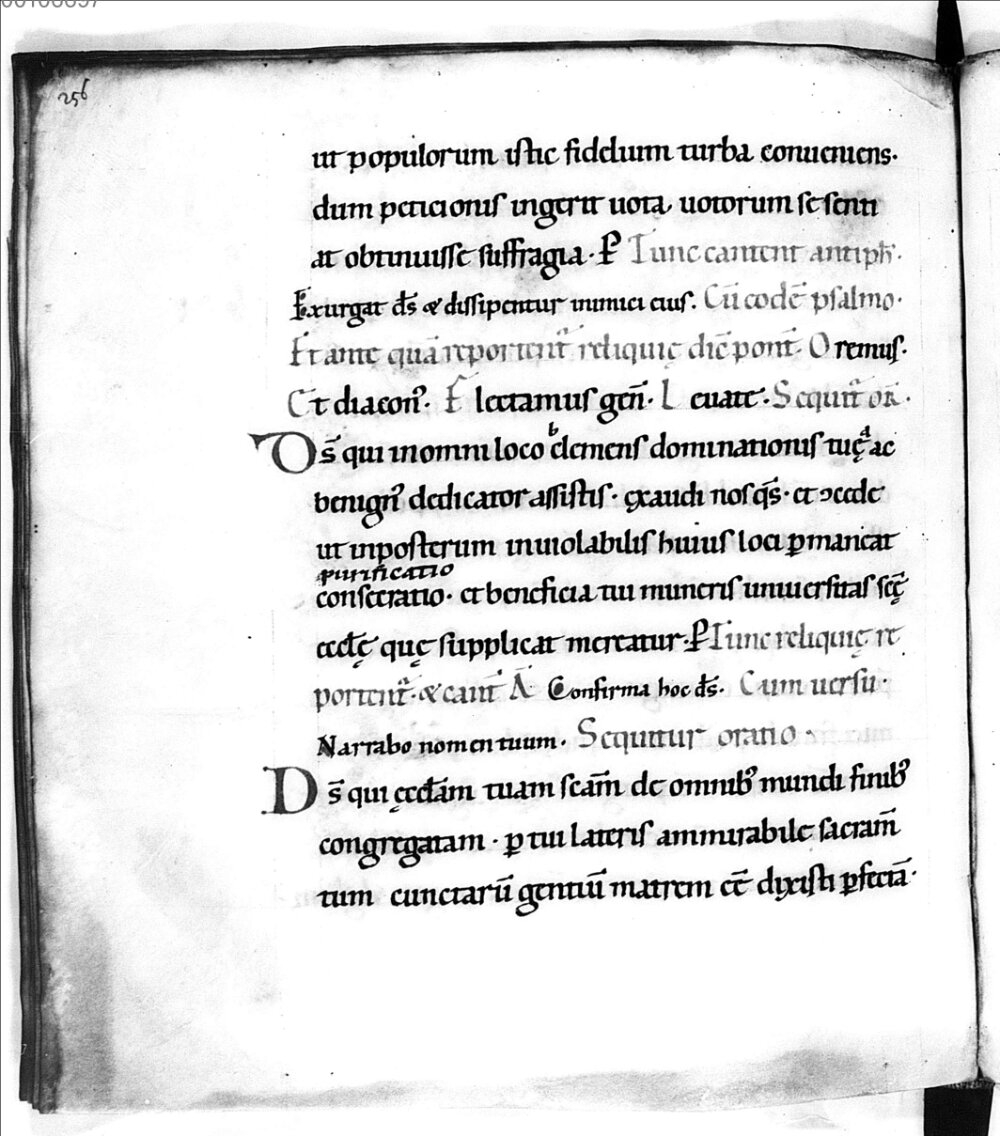 256
ut populorum istic fidelium turba conueniens.
dum peticionis ingerit uota, uotorum se senti
at obtinuisse suffragia. P̄ Tunc cantent antiph̄.
Exurgat d̄s & dissipentur inimici eius. Cū eodē psalmo.
Et ante quā reportent᷑ reliquię dic̄ pont̄. Oremus.
Et diacon᷒. Flectamus geñ. Leuate. Sequit᷑ or̄.
D̄s qui in omni loco ᵇclemens dominationis tuę ᵃac
benign᷒ dedicator assistis. exaudi nos q̄s. et ɔcede
ut inposterum inuiolabilis huius loci ꝑmaneat
purificatio
consecratio. et beneficia tui muneris uniuersitas sc̄ę
eccl̄ę quę supplicat mereatur. P̄ Tunc reliquię re
portent᷑. & cant̄ A̅ Confirma hoc d̄s. Cum uersu.
Narrabo nomen tuum. Sequitur oratio.
D̄s qui ęccl̄am tuam sc̄am de omnib᷒ mundi finib᷒
congregatam. ꝑ tui lateris ammirabile sacram̄
tum cunctarū gentiū matrem eē dixisti ꝑfectā.